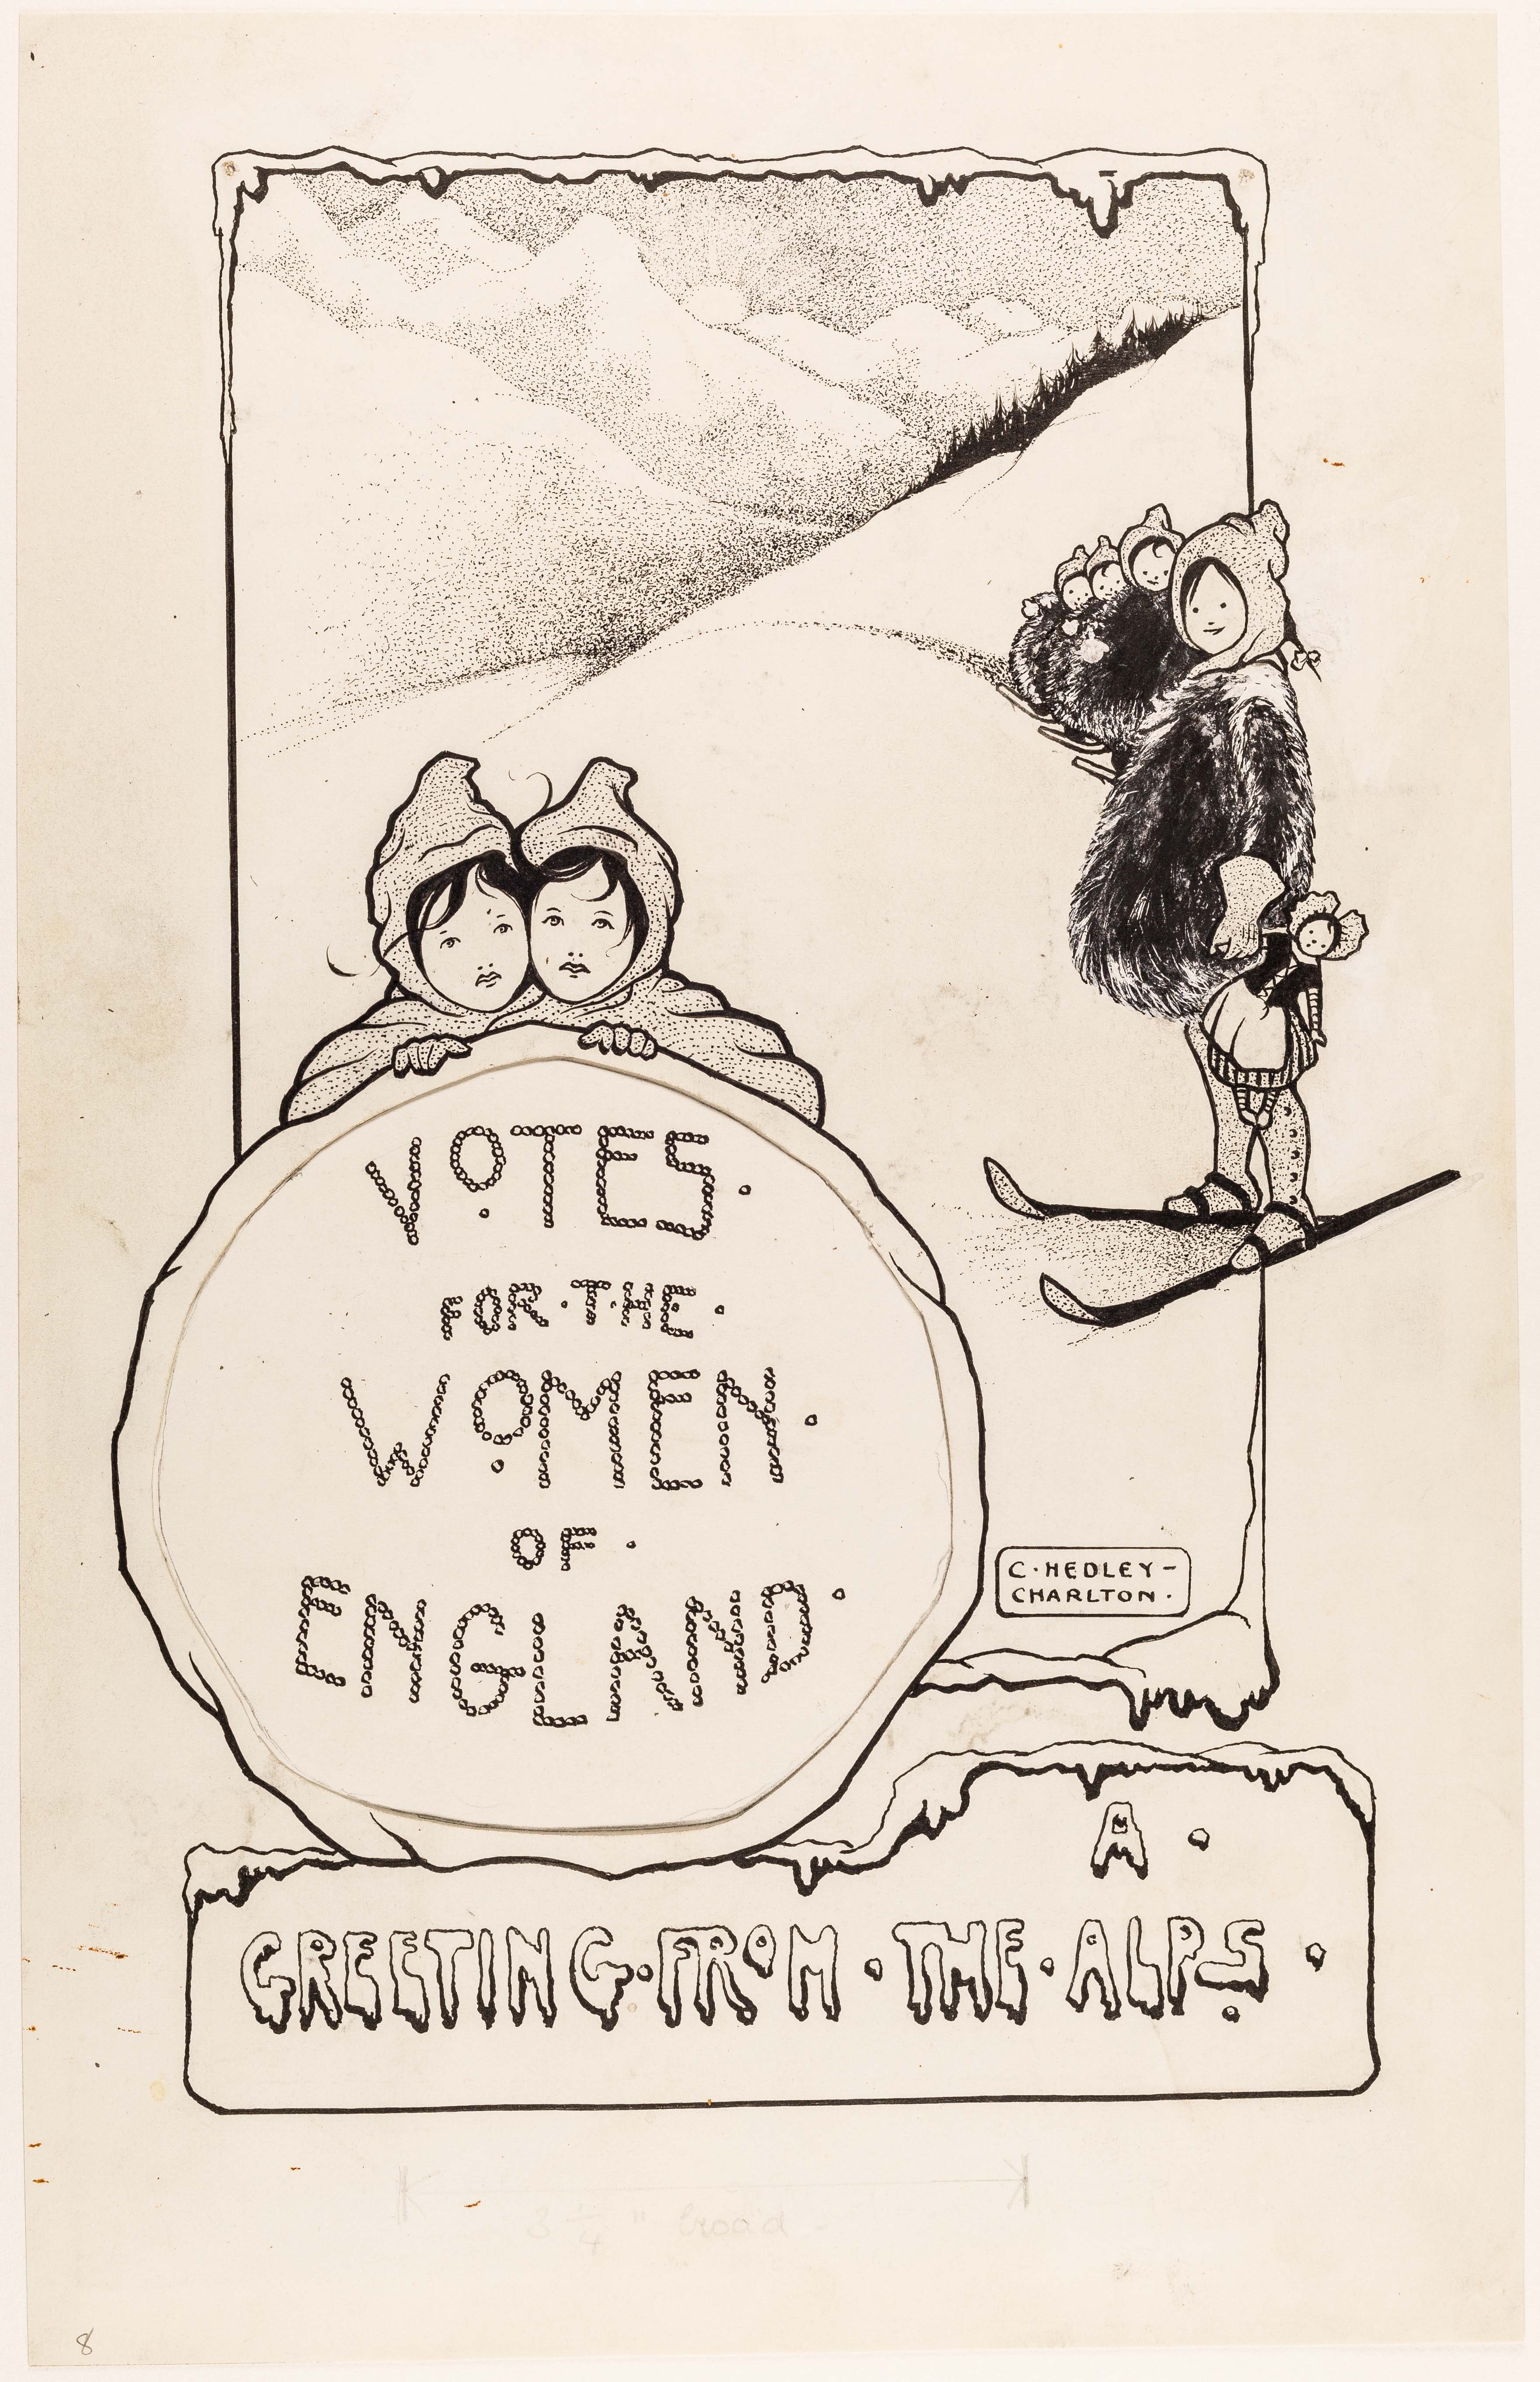 VOTES.
FOR·THE·
WOMEN·
OF·
ENGLAND·
C·HEDLEY-
CHARLTON.
A·
GREETING·FROM·THE·ALPS·
3 1/4" broad
8